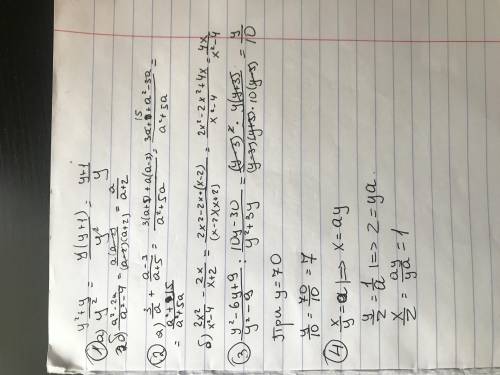 ① а) (y² + y)/y² = y(y+1)/y² = (y+1)/y
б) (a² - 2a)/(a² - 4) = a(a-2)/((a-2)(a+2)) = a/(a+2)
② а) 3/a + (a-3)/(a+5) = (3(a+5) + a(a-3))/(a² + 5a) = (3a + 15 + a² - 3a)/(a² + 5a) =
= (a² + 15)/(a² + 5a)
б) 2x²/(x² - 4) - 2x/(x+2) = (2x² - 2x · (x-2))/((x-2)(x+2)) = (2x² - 2x² + 4x)/(x² - 4) = 4x/(x² - 4)
③ (y² - 6y + 9)/(y² - 9) : (10y - 30)/(y² + 3y) = ((y-3)² · y(y+3))/((y-3)(y+3) · 10(y-3)) = y/10
При y = 70
y/10 = 70/10 = 7
④ x/y = a | => x = ay
y/z = 1/a | => z = ya.
x/z = ay/ya = 1